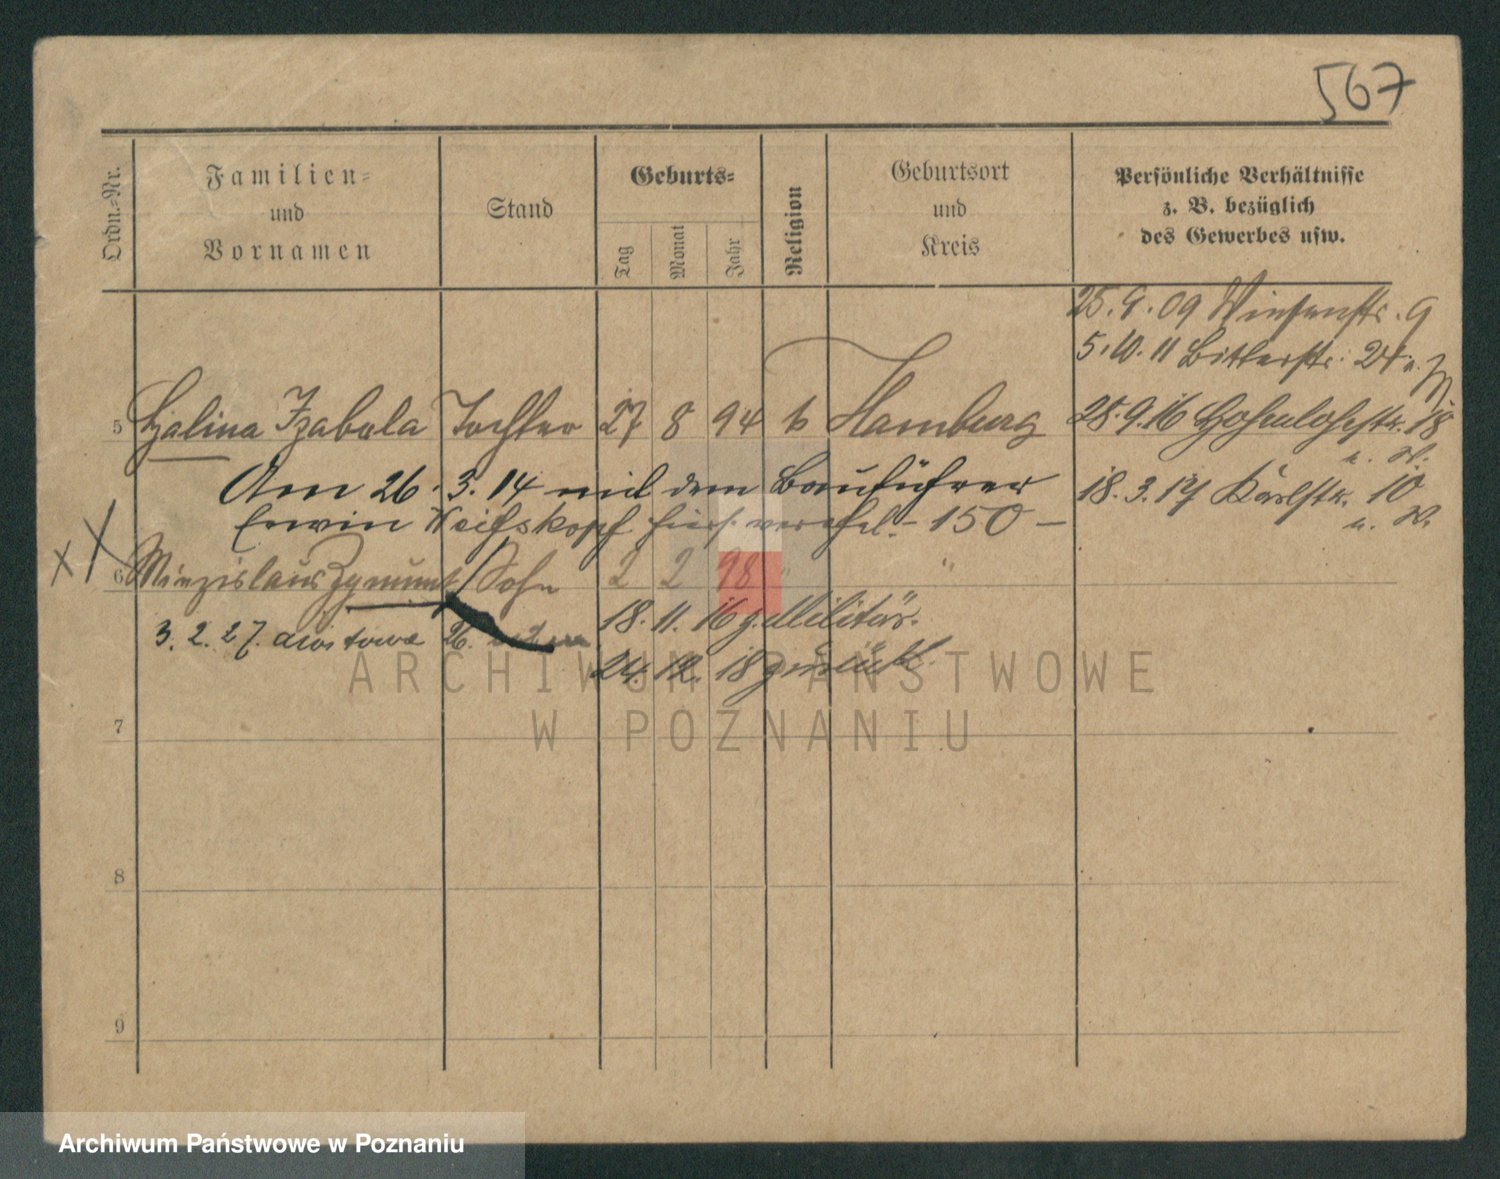 567
Ordn.-Nr.
Familien-
und
Vornamen
Stand
Geburts-
Tag
Monat
Jahr
Religion
Geburtsort
und
Kreis
Persönliche Verhältnisse
z. B. bezüglich
des Gewerbes usw.
25. 9. 09 Wiesenstr. 9
5. 10. 11 Bitterstr. 24
5 Halina Izabela Tochter 27 8 94 k Hamburg 28. 9. 16 Hohenlohestr. 18
Am 26. 3. 14 mit dem Bauführer 18. 3. 17 Karlstr. 10
Erwin Weißkopf hier verehel. - 150 -
x X
6 Miezislaus Zygmunt Sohn 2 2 98 " "
18. 11. 16 z. Militär.
3. 2. 27. 26.
24. 12. 18 zurück.
7
8
9
ARCHIWUM PAŃSTWOWE
W POZNANIU
Archiwum Państwowe w Poznaniu